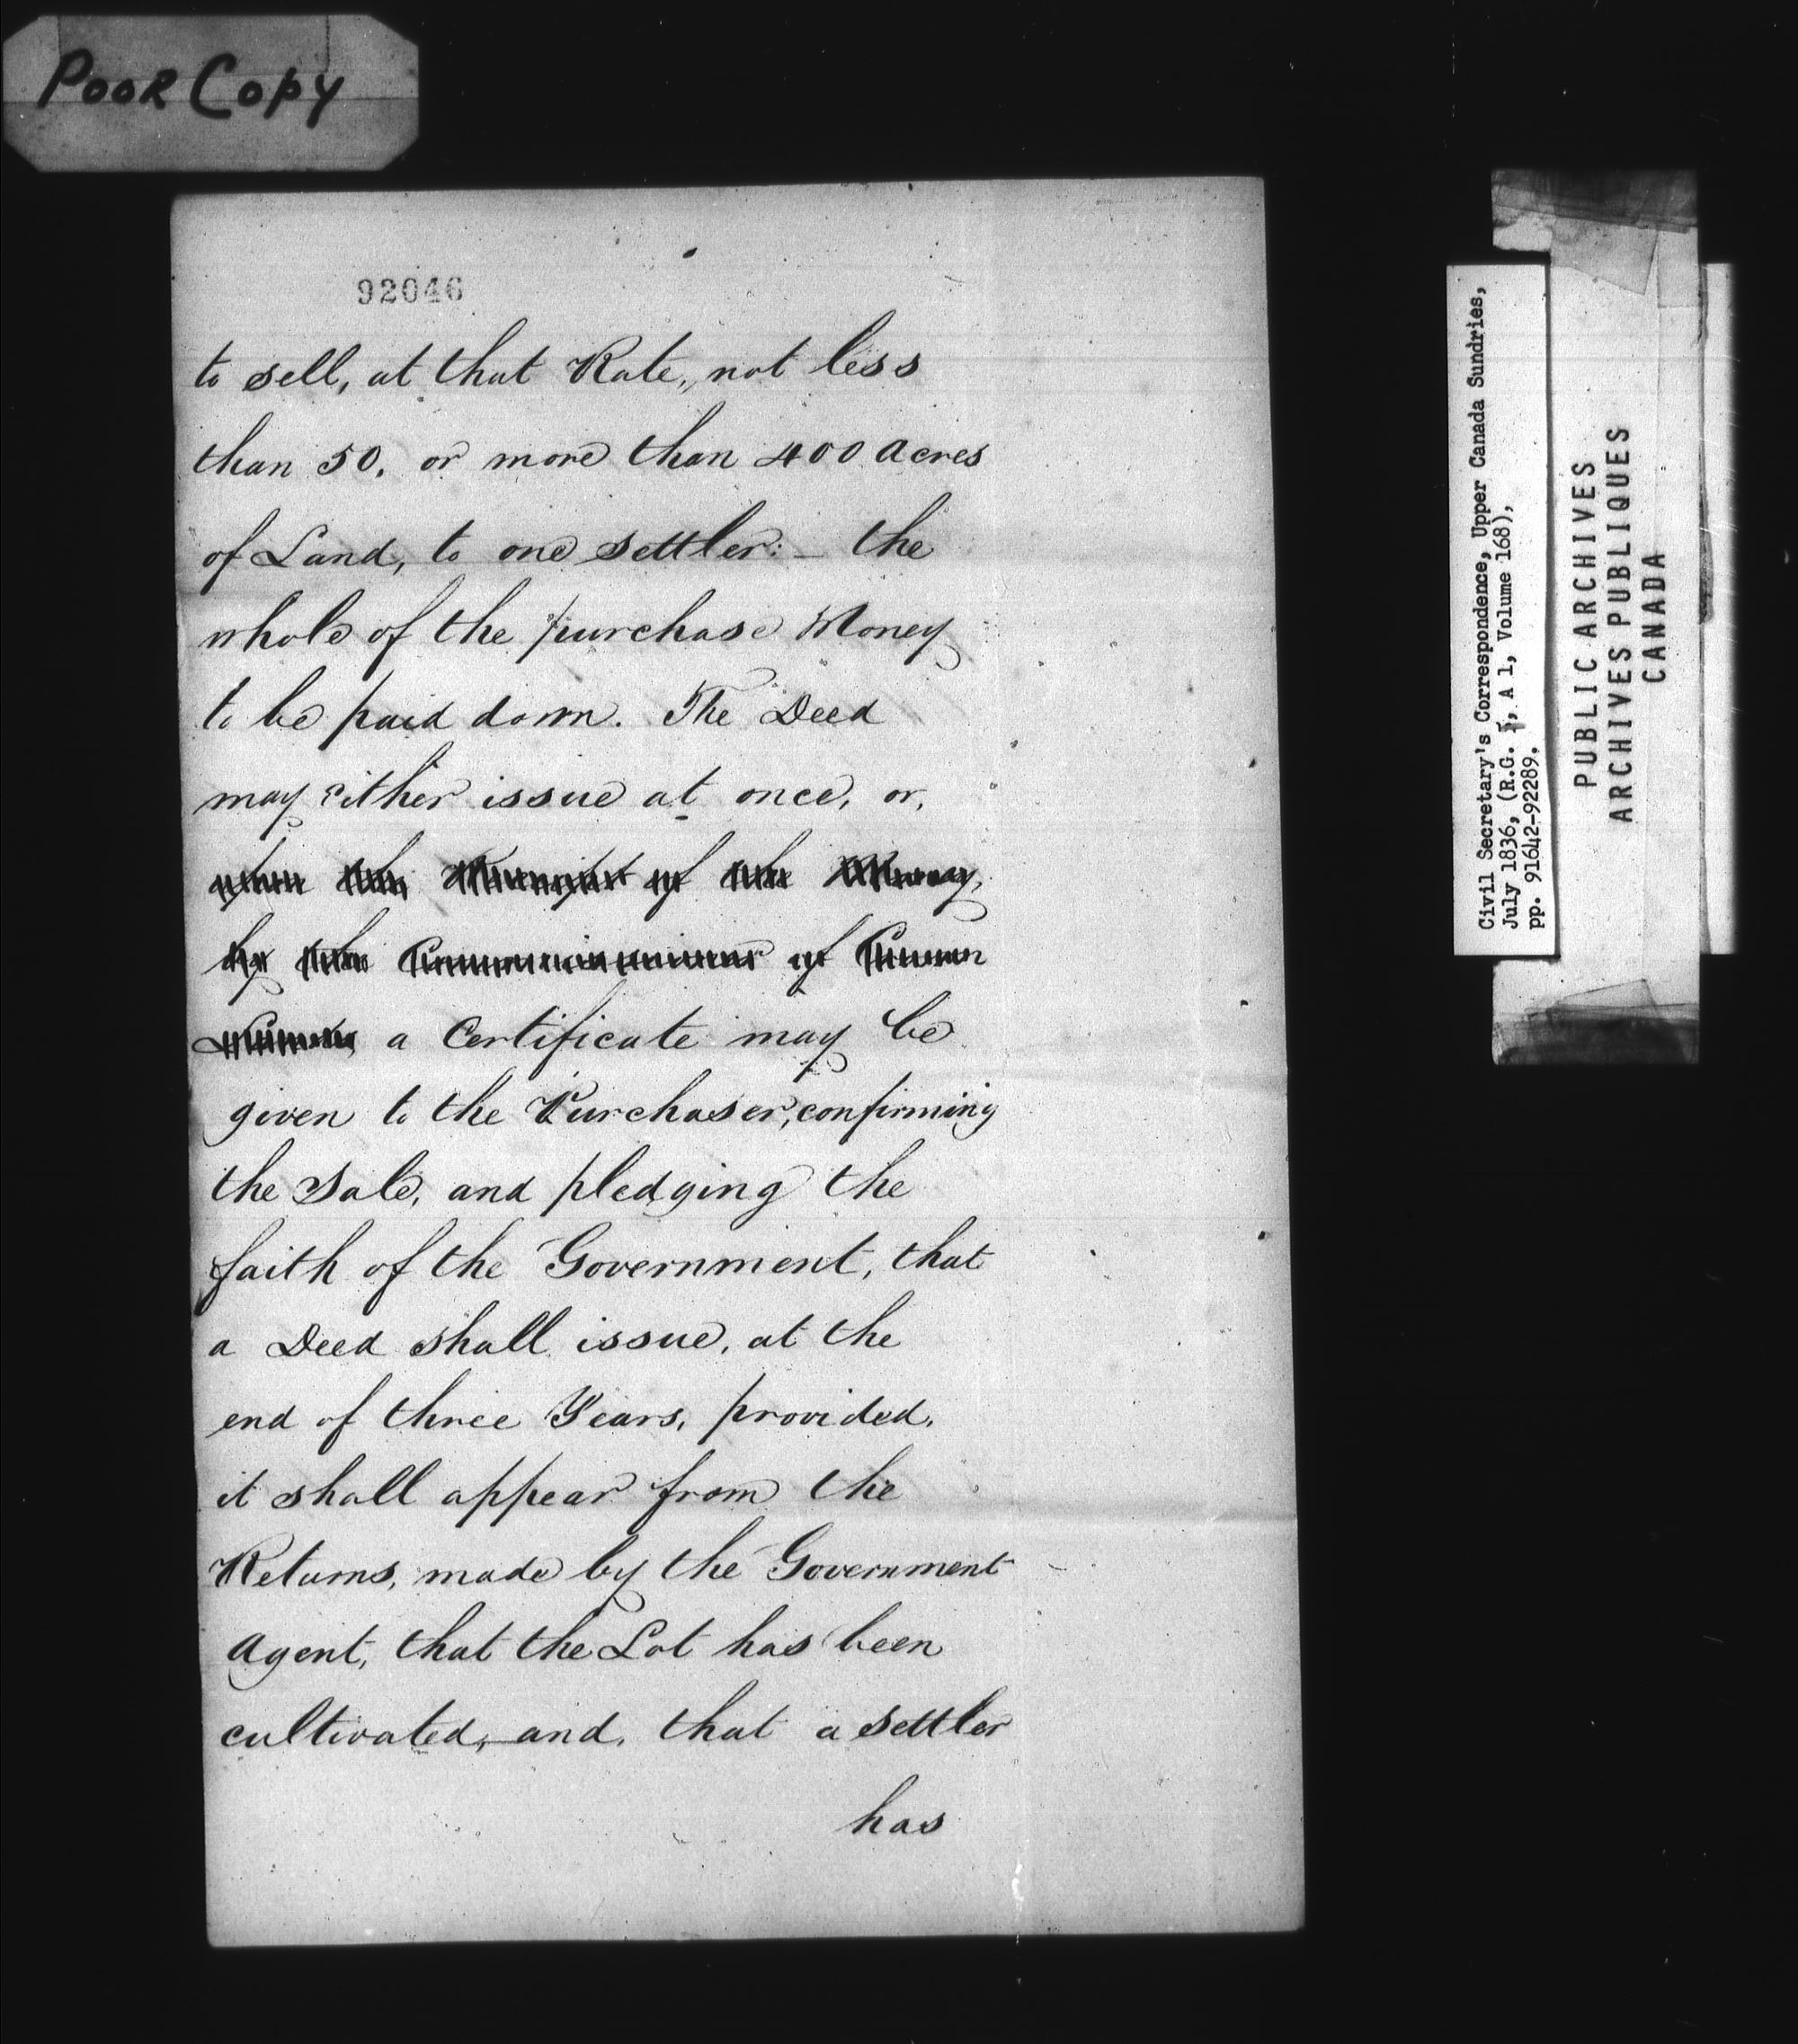 Poor Copy
92046
to sell, at that Rate, not less
than 50, or more than 400 Acres
of Land, to one settler: – the
whole of the purchase Money
to be paid down. The Deed
may either issue at once, or,
of the
by the Commissioner of Crown
a Certificate may be
given to the Purchaser, confirming
the Sale, and pledging the
faith of the Government, that
a Deed shall issue, at the
end of three Years, provided,
it shall appear from the
Returns, made by the Government
Agent, that the Lot has been
cultivated, and, that a settler
has
Civil Secretary's Correspondence, Upper Canada Sundries,
July 1836, (R.G. 5, A 1, Volume 168),
pp. 91642-92289.
PUBLIC ARCHIVES
ARCHIVES PUBLIQUES
CANADA